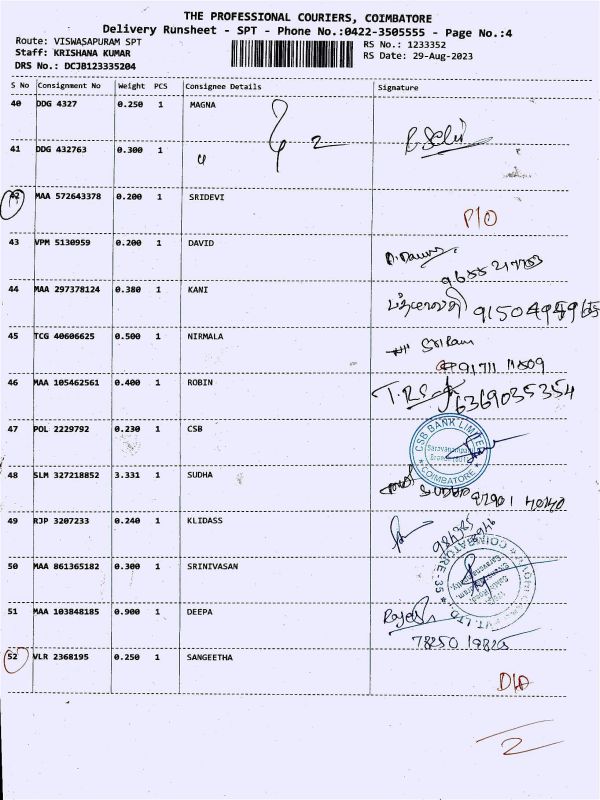 THE PROFESSIONAL COURIERS, COIMBATORE
Delivery Runsheet - SPT - Phone No.:0422-3505555 - Page No.:4
Route: VISWASAPURAM SPT
RS No.: 1233352
Staff: KRISHANA KUMAR
RS Date: 29-Aug-2023
DRS No.: DCJB123335204
S No Consignment No Weight PCS Consignee Details Signature
40 DDG 4327 0.250 1 MAGNA
2
41 DDG 432763 0.300 1
42 MAA 572643378 0.200 1 SRIDEVI
P/O
43 VPM 5130959 0.200 1 DAVID
44 MAA 297378124 0.380 1 KANI
45 TCG 40606625 0.500 1 NIRMALA
Sri Ram
46 MAA 105462561 0.400 1 ROBIN
6369035354
47 POL 2229792 0.230 1 CSB
CSB BANK LIMITED
COIMBATORE
48 SLM 327218852 3.331 1 SUDHA
49 RJP 3207233 0.240 1 KLIDASS
50 MAA 861365182 0.300 1 SRINIVASAN
COIMBATORE-35
51 MAA 103848185 0.900 1 DEEPA
52 VLR 2368195 0.250 1 SANGEETHA
2